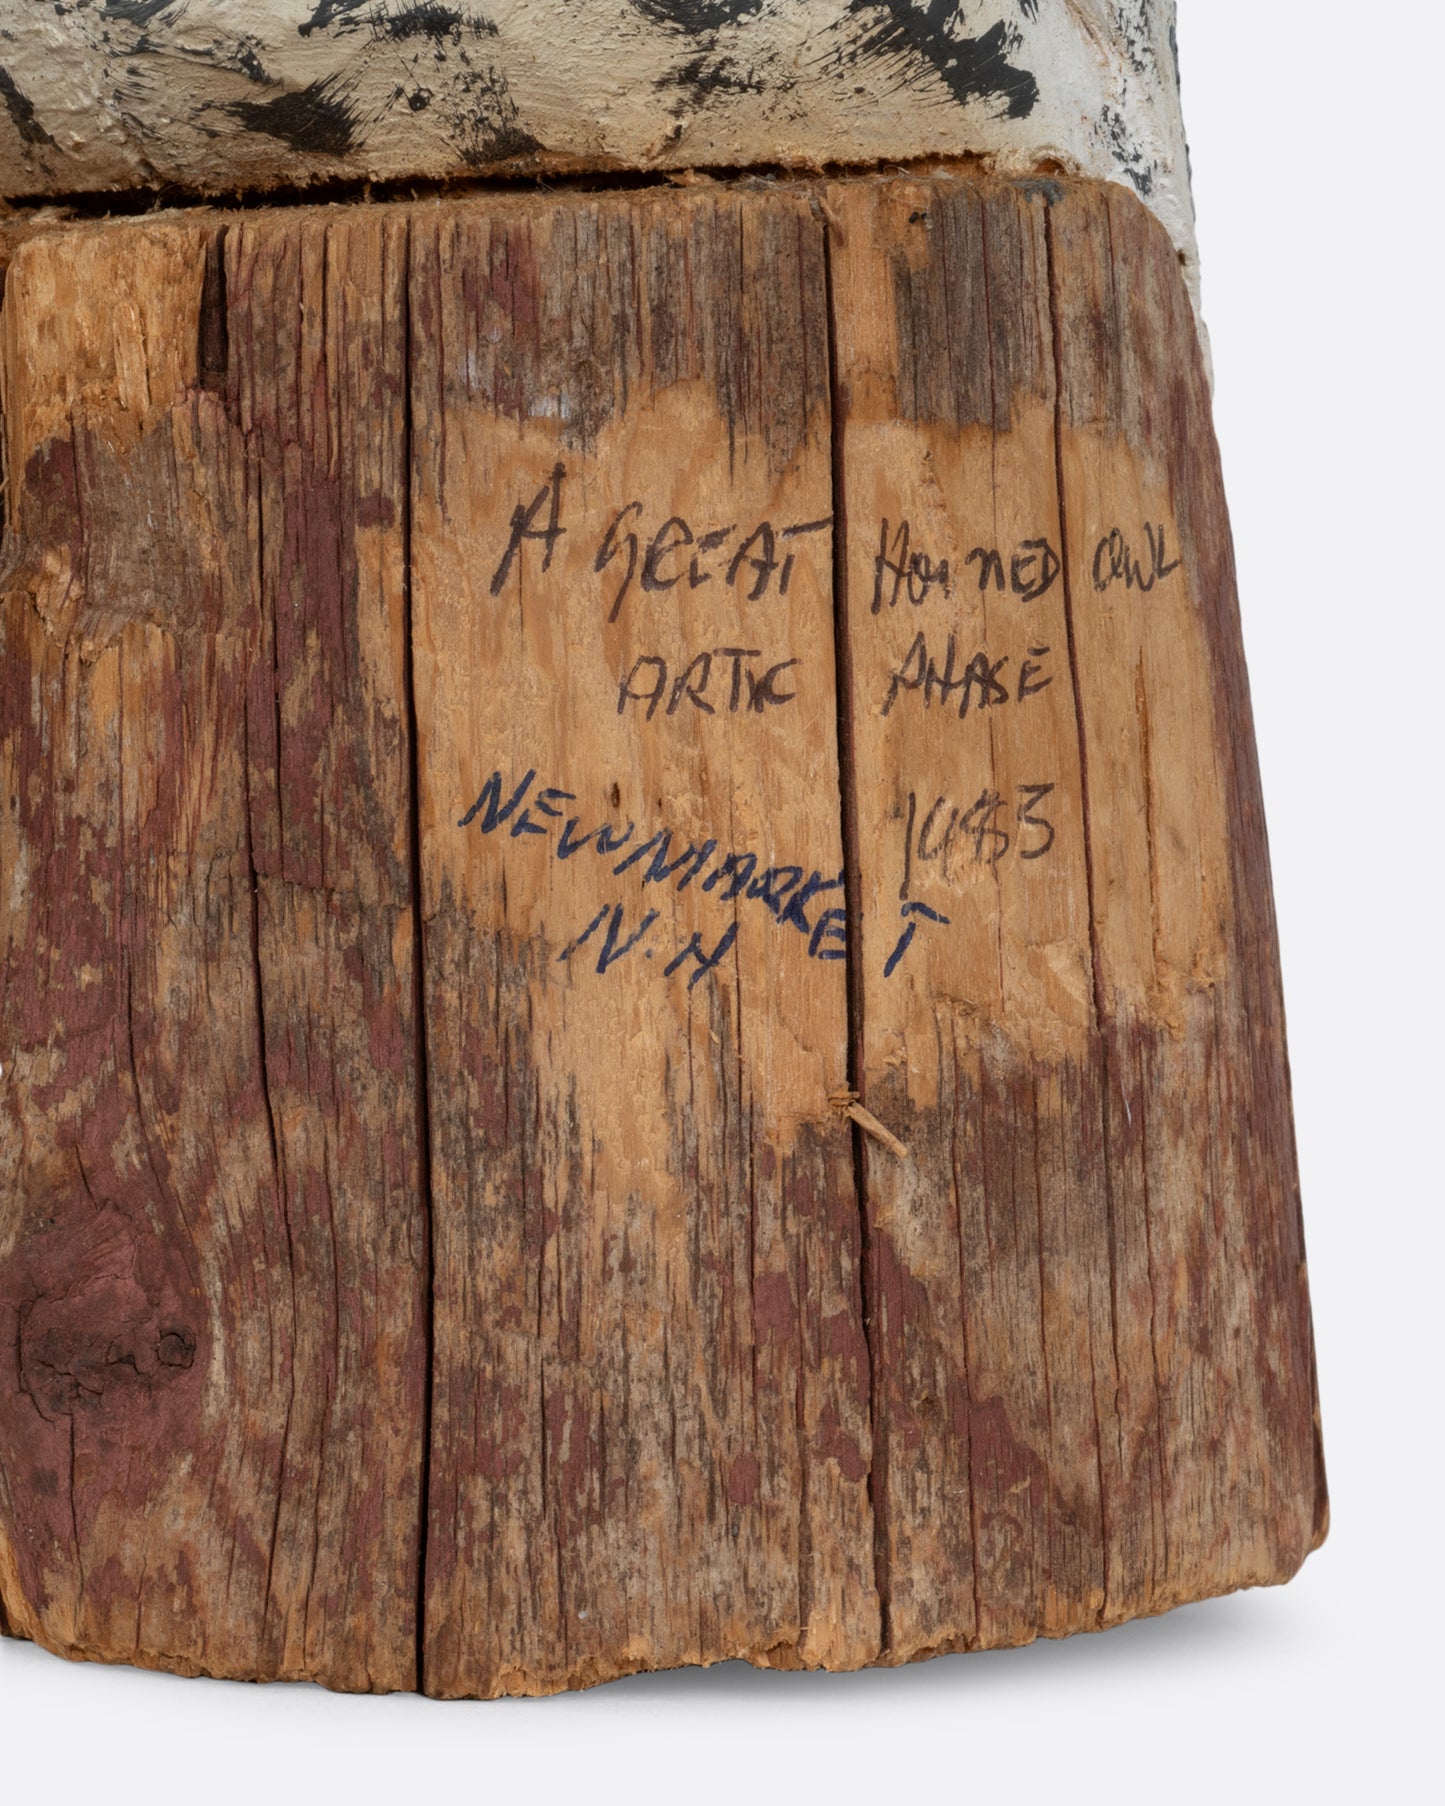 A GREAT HORNED OWL
ARTIC PHASE
1983
NEWMARKET
N.H